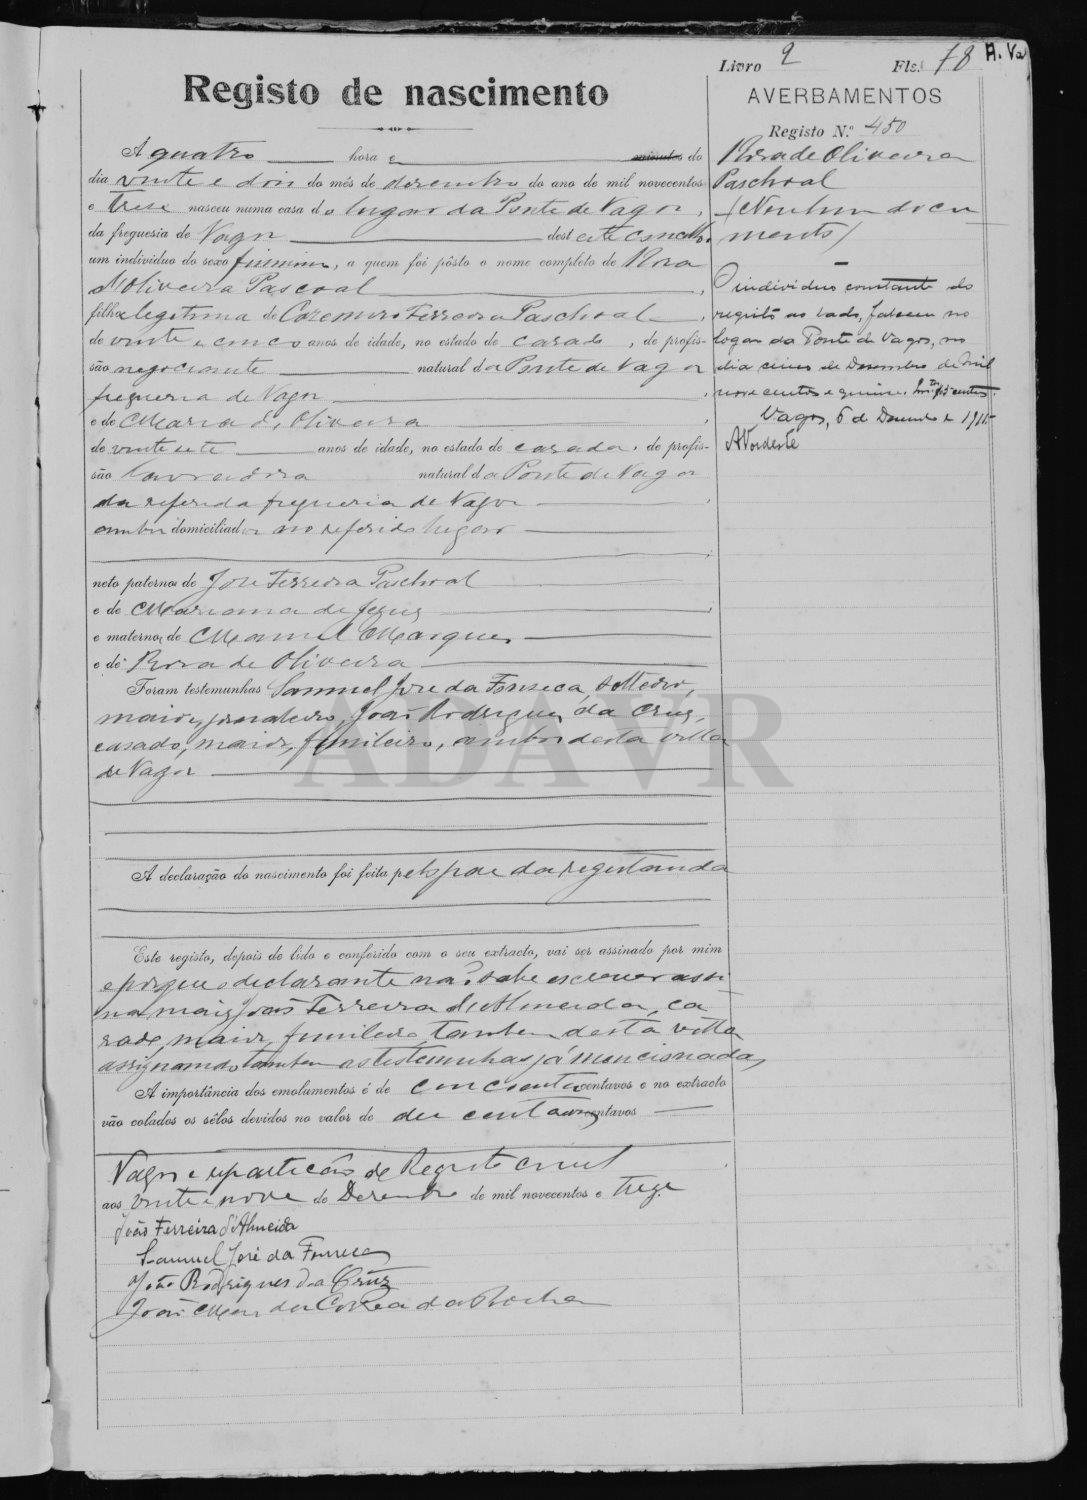 Livro 2 Fls. 78 A. Va
Registo de nascimento
AVERBAMENTOS
Registo N.º 450
A quatro hora e minutos do
dia vinte e dois do mês de dezembro do ano de mil novecentos
e treze nasceu numa casa do lugar da Ponte de Vagos,
da freguesia de Vagos deste concelho
um individuo do sexo feminino, a quem foi pôsto o nome completo de Rosa
d'Oliveira Pascoal
filha legitima de Cazemiro Ferreira Paschoal
de vinte e cinco anos de idade, no estado de casado, de profis-
são negociante natural da Ponte de Vagos
freguesia de Vagos
e de Maria d'Oliveira
de vinte sete anos de idade, no estado de casada, de profis-
são lavradora natural da Ponte de Vagos
da referida freguesia de Vagos
ambos domiciliados no referido lugar
neto paterno de José Ferreira Paschoal
e de Marianna de Jesus
e materno de Manuel Marques
e de Rosa de Oliveira
Foram testemunhas Samuel José da Fonseca, solteiro,
maior, jornaleiro, João Rodrigues da Cruz,
casado, maior, funileiro, ambos desta villa
de Vagos
A declaração do nascimento foi feita pelo pae da registanda
Este registo, depois de lido e conferido com o seu extracto, vai ser assinado por mim
e porque o declarante não sabe escrever assi
na mais João Ferreira d'Almeida, ca
sado, maior, funileiro, tambem desta villa
assignando tambem as testemunhas já mencionadas,
A importância dos emolumentos é de cincoenta centavos e no extracto
vão colados os sêlos devidos no valor de dez centavos centavos
Vagos e repartição do Registo civil
aos vinte e nove de Dezembro de mil novecentos e treze
João Ferreira d'Almeida
Samuel José da Fonseca
João Rodrigues da Cruz
João Correa da Rocha
Rosa de Oliveira
Paschoal
(Nenhum docu
mento)
O individuo constante do
registo ao lado, faleceu no
logar da Ponte de Vagos, no
dia cinco de Dezembro de mil
nove centos e quinze.
Vagos, 6 de Dezembro de 1915
ADAVR